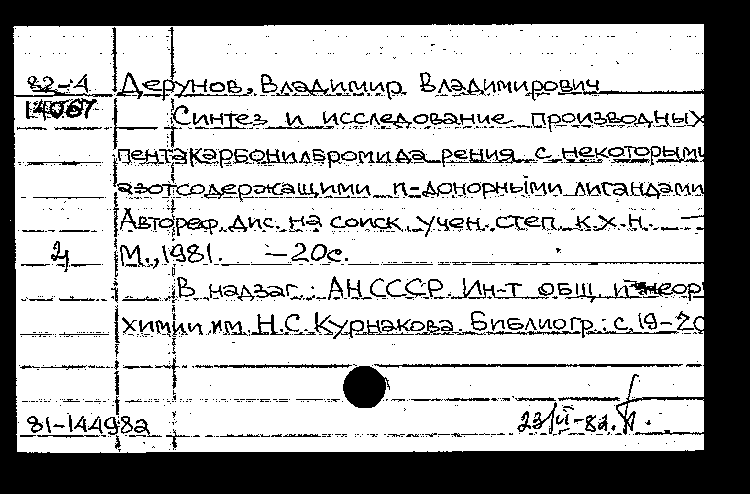 82-4 Дерунов, Владимир Владимирович
14067 Синтез и исследование производных
пентакарбонилбромида рения с некоторыми
азотсодержащими n-донорными лигандами
Автореф. дис. на соиск. учен. степ. к.х.н. —
2 М., 1981. — 20с.
В надзаг.: АН СССР. Ин-т общ. и неорг
химии им. Н.С. Курнакова. Библиогр.: с. 19-20
81-144982 23/VI-82.